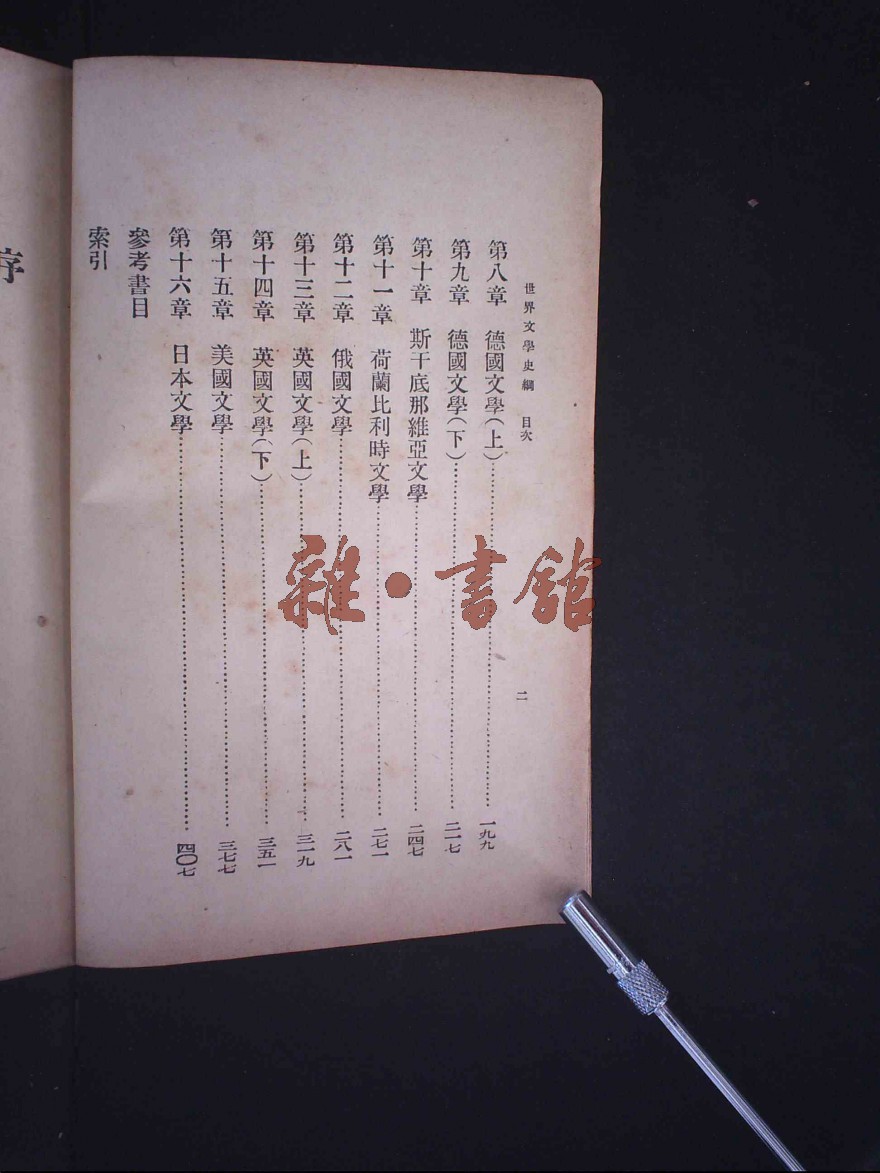 世界文學史綱 目次 二
第八章 德國文學（上）……一九九
第九章 德國文學（下）……二一七
第十章 斯干底那維亞文學……二四七
第十一章 荷蘭比利時文學……二七一
第十二章 俄國文學……二八一
第十三章 英國文學（上）……三一九
第十四章 英國文學（下）……三五一
第十五章 美國文學……三七七
第十六章 日本文學……四〇七
參考書目
索引
序
雜・書館